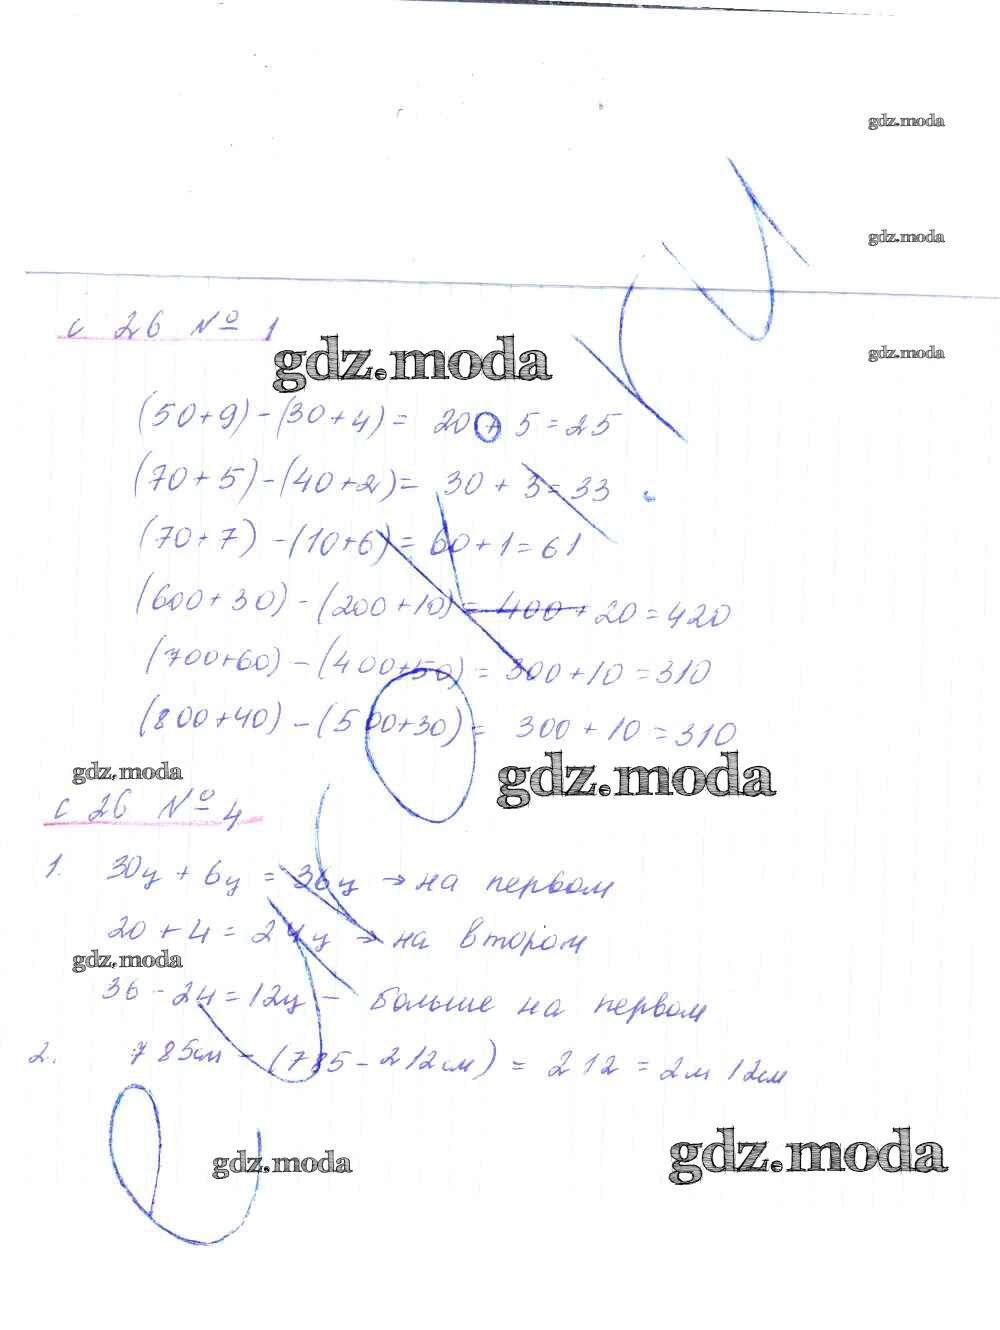 gdz.moda
gdz.moda
с 26 № 1
gdz.moda
gdz.moda
(50+9)-(30+4)= 20+5=25
(70+5)-(40+2)= 30+3=33
(70+7)-(10+6)=60+1=61
(600+30)-(200+10)=400+20=420
(700+60)-(400+50)=300+10=310
(800+40)-(500+30)= 300+10=310
gdz.moda
gdz.moda
с 26 № 4
1. 30ц+6ц=36ц → на первом
20+4=24ц → на втором
gdz.moda
36-24=12ц - больше на первом
2. 785см-(785-212см)=212=2м 12см
gdz.moda
gdz.moda